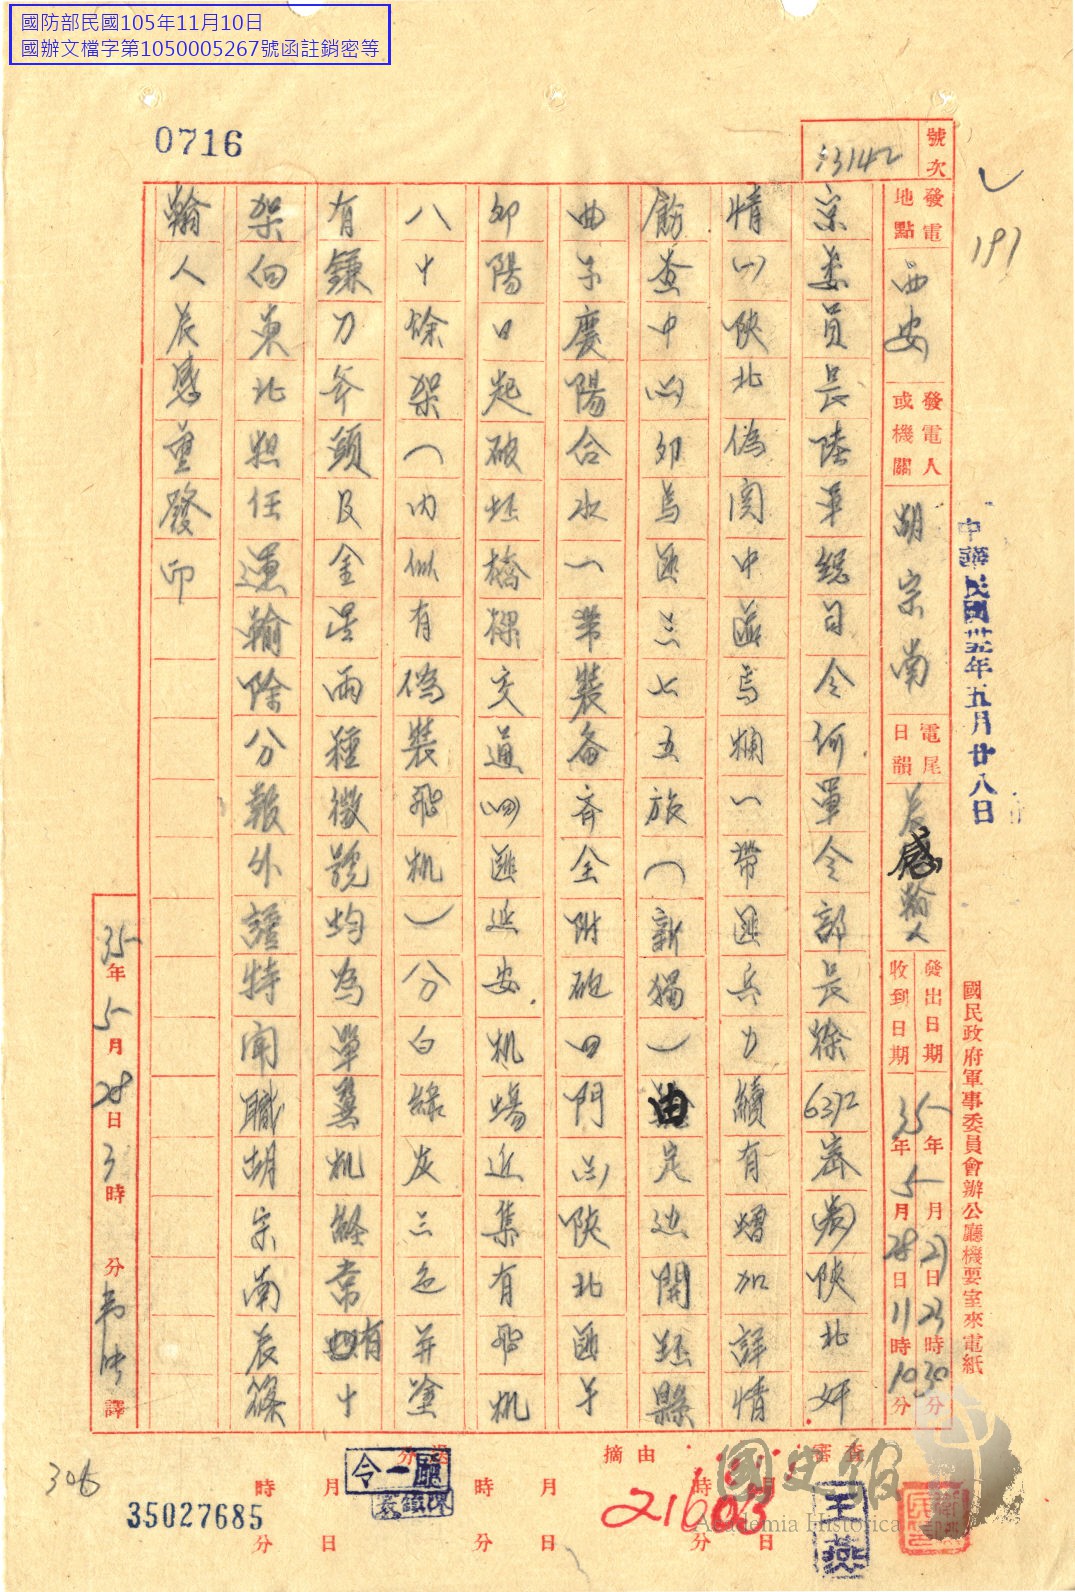 國防部民國105年11月10日
國辦文檔字第1050005267號函註銷密等
0716
號次
33142
191
發電地點
西安
發電人或機關
胡宗南
電尾日韻
辰感翰人
發出日期
35年5月27日23時30分
收到日期
35年5月28日11時10分
中華民國卅五年五月廿八日
國民政府軍事委員會辦公廳機要室來電紙
京委員長陸軍總司令何軍令部長徐6372密陝北奸
情(一)陝北偽関中匪馬欄一帶匪兵力續有增加詳情
飭查中(二)卯馬匪三七五旅(新獨一)由定邊開環縣
曲子慶陽合水一帶裝备齐全附砲四門(三)陝北匪于
卯陽日起破坯橋樑交通(四)匪延安机場近集有飛机
八十餘架(內似有偽裝飛机)分白綠灰三色并塗
有鎌刀斧頭及金星兩種徽號均為單翼机経常有十
架向東北担任運輸除分報外謹特聞職胡宗南辰篠
翰人辰感重發印
35年5月28日3時分
譯
審查
摘由
月日時分
分送
月日時分
月日時分
令一廳
王燕
21603
306
35027685
國史館
Academia Historica